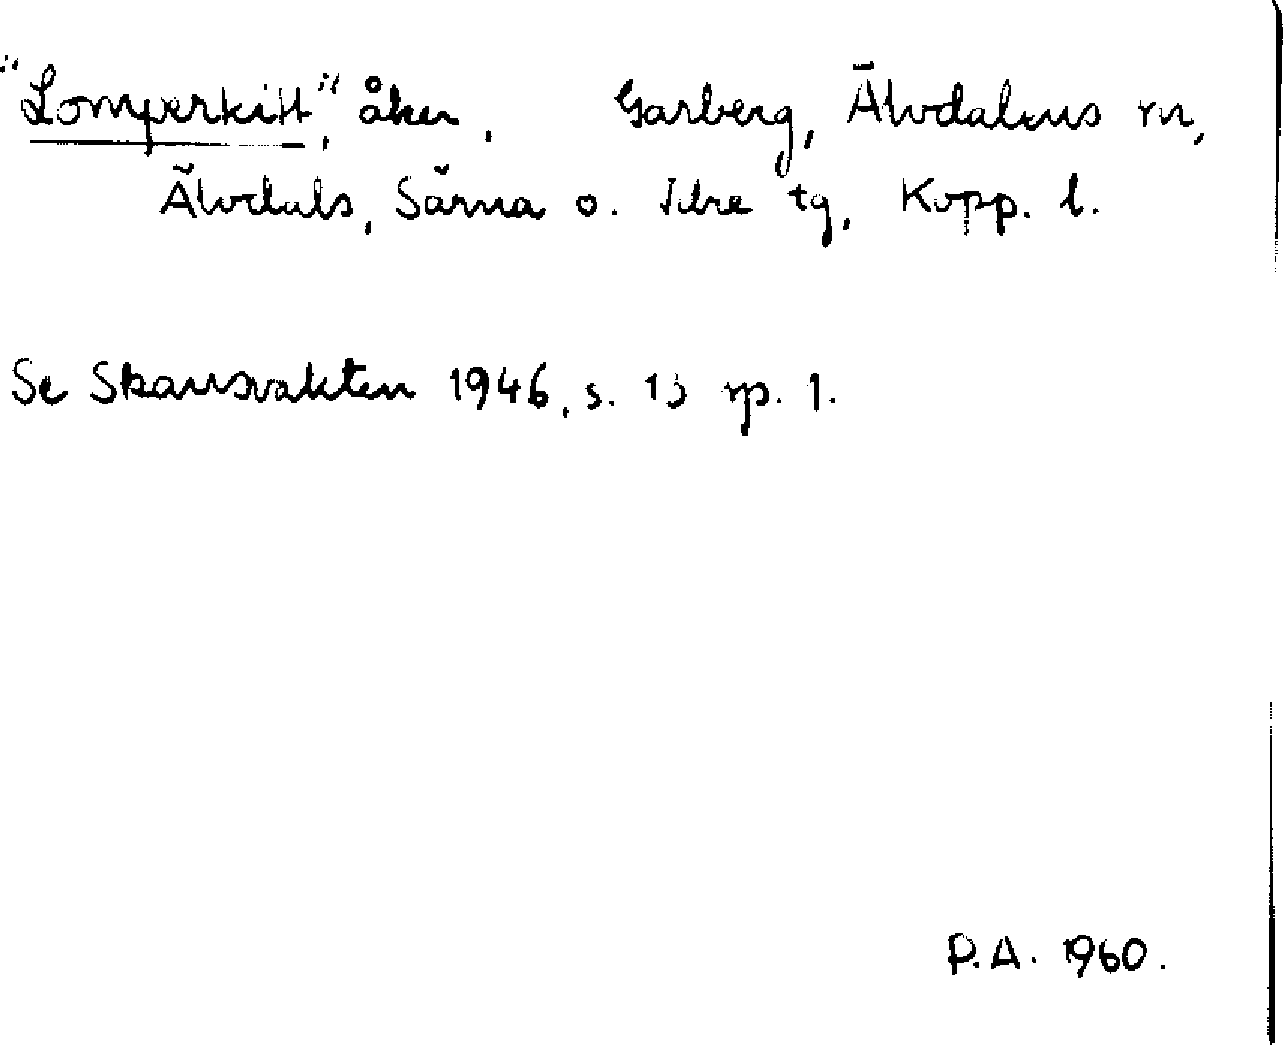 "Lomperkitt", åker, Garberg, Älvdalens sn,
Älvdals, Särna o. Idre tg, Kopp. l.
Se Skansvakten 1946, s. 13 sp. 1.
P.A. 1960.